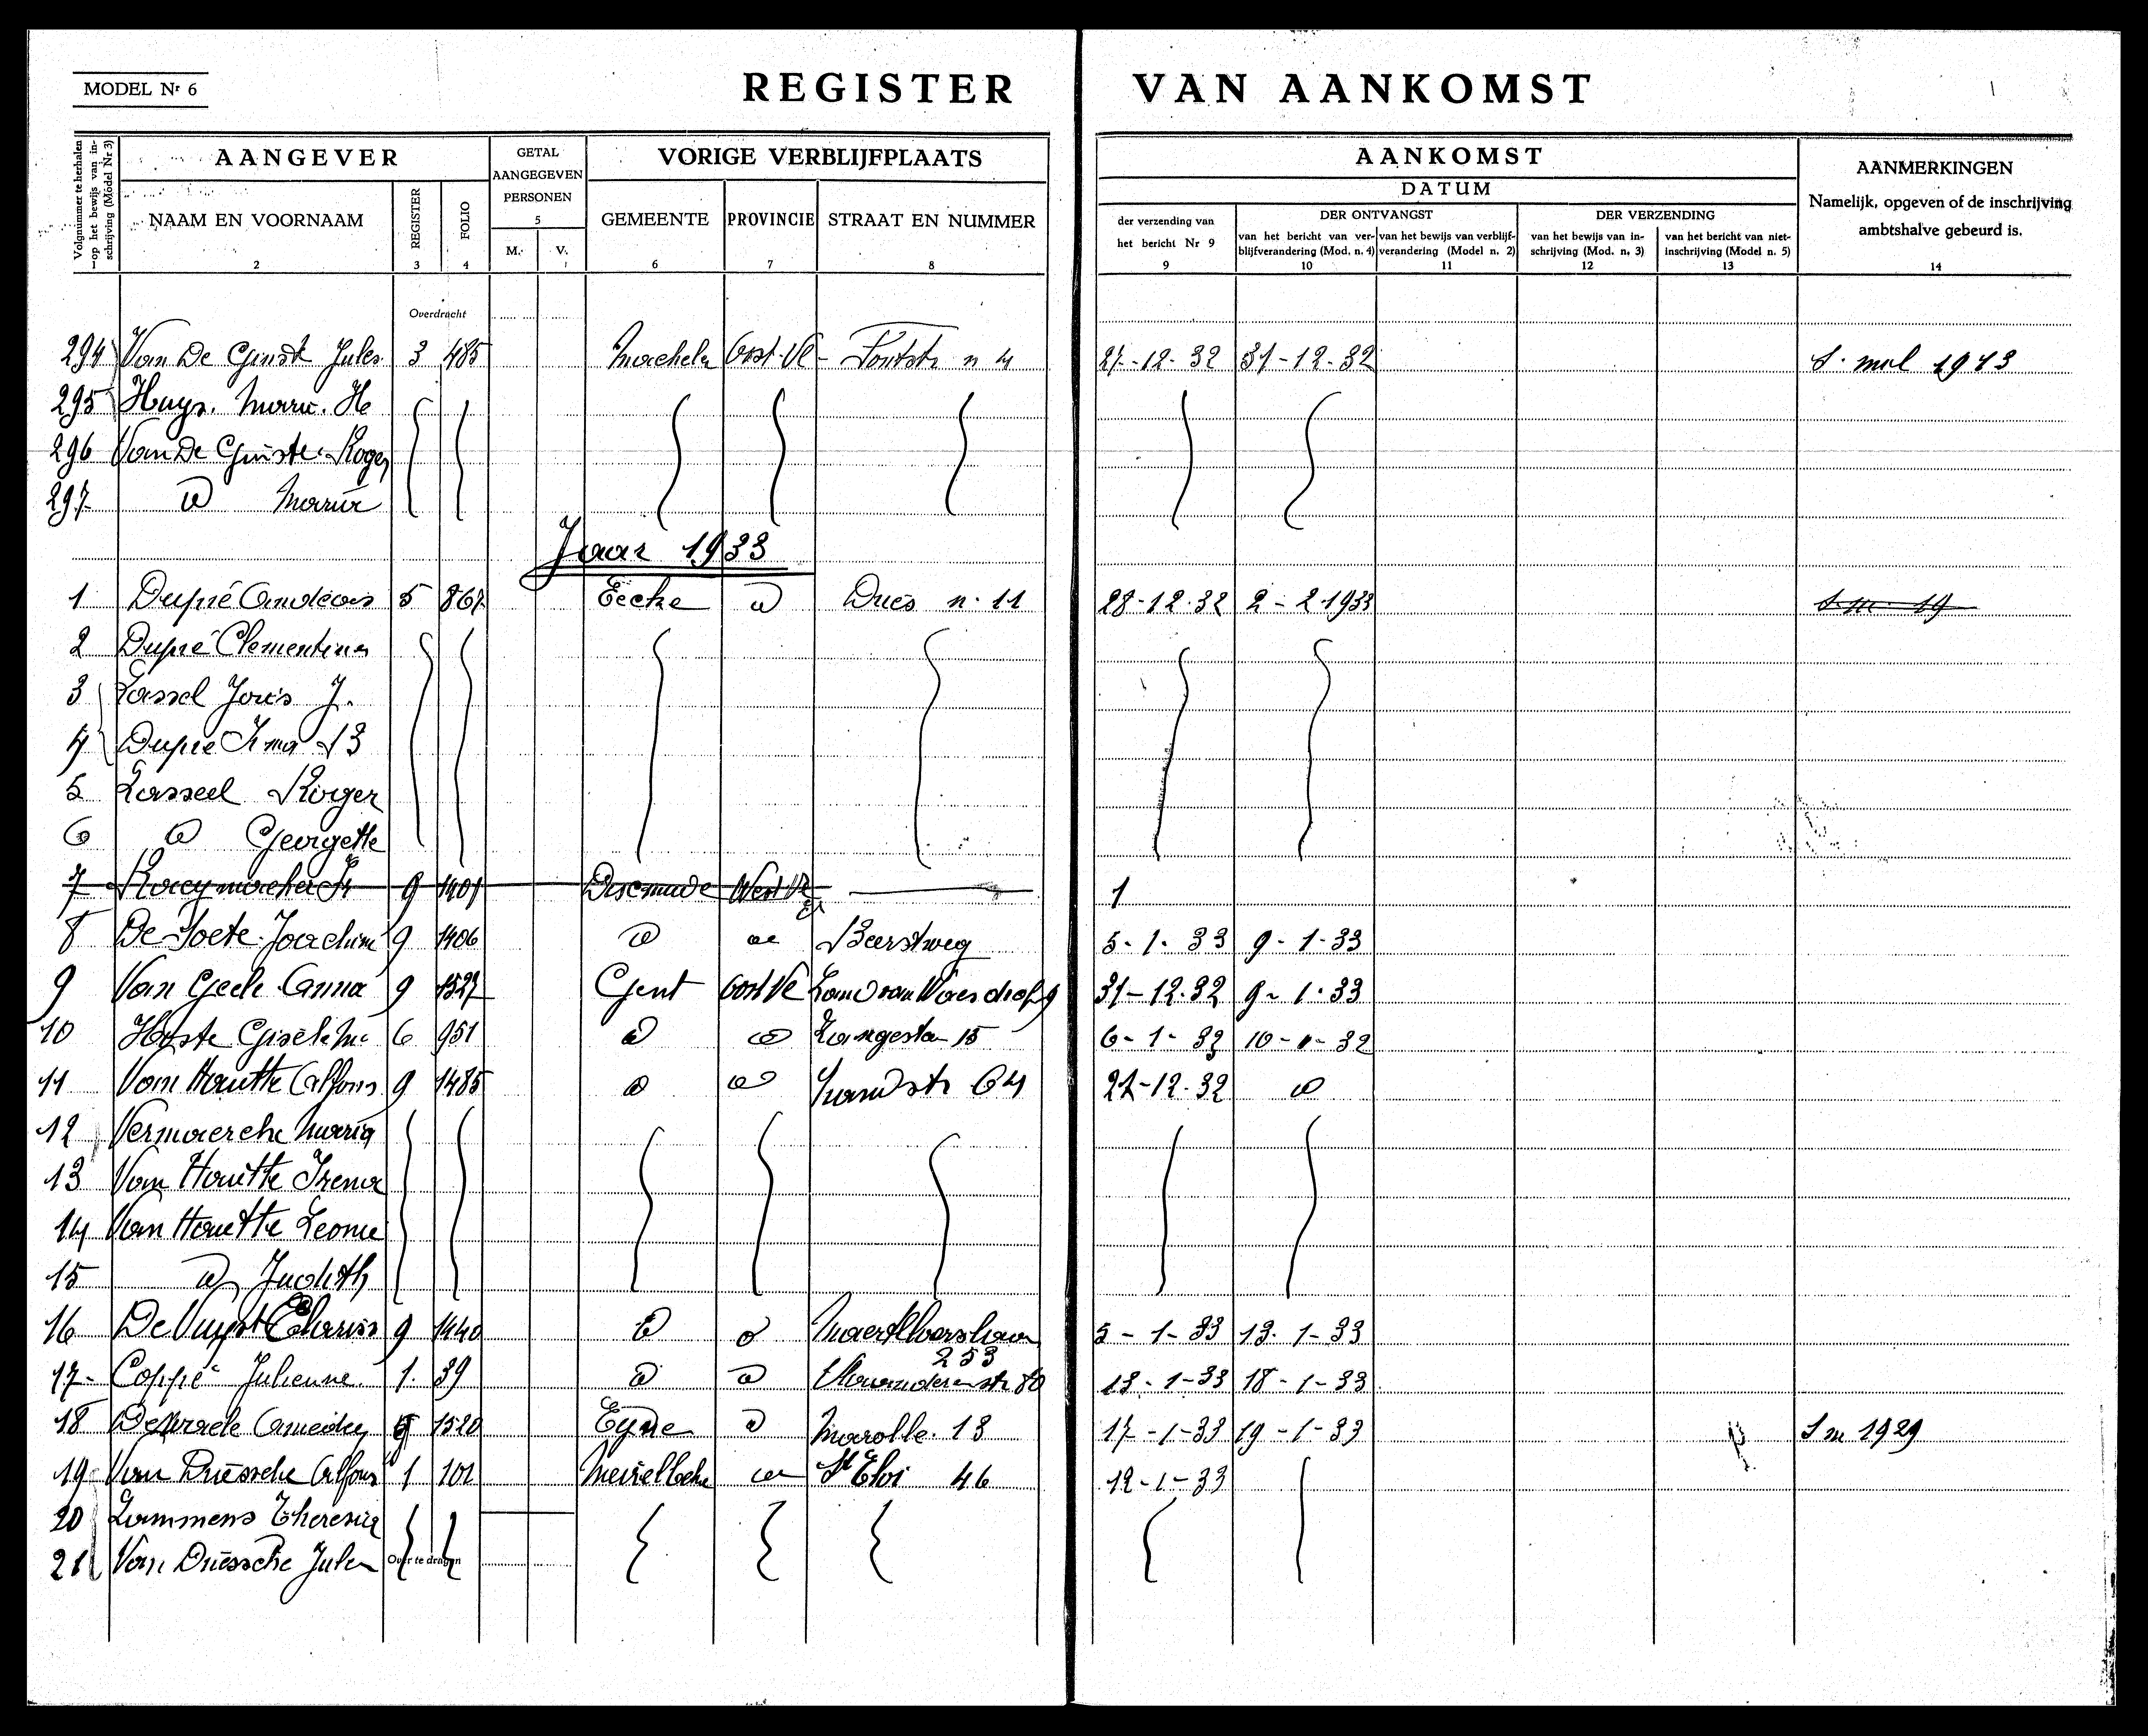 MODEL Nr 6
REGISTER VAN AANKOMST
Volgnummer te herhalen op het bewijs van inschrijving (Model Nr 3) 1
AANGEVER
NAAM EN VOORNAAM 2
REGISTER 3
FOLIO 4
GETAL AANGEGEVEN PERSONEN 5
M. V.
VORIGE VERBLIJFPLAATS
GEMEENTE 6
PROVINCIE 7
STRAAT EN NUMMER 8
AANKOMST
DATUM
der verzending van het bericht Nr 9 9
DER ONTVANGST
van het bericht van verblijfverandering (Mod. n. 4) 10
van het bewijs van verblijfverandering (Model n. 2) 11
DER VERZENDING
van het bewijs van inschrijving (Mod. n. 3) 12
van het bericht van niet-inschrijving (Model n. 5) 13
AANMERKINGEN
Namelijk, opgeven of de inschrijving ambtshalve gebeurd is.
14
Overdracht
294 Van De Ginste Jules 3 485 Machelen Oost-Vl - n 4 27-12-32 31-12-32 S. mil 1913
295 Huys. Marie. He
296 Van De Ginste Roger
297 id Maria
Jaar 1933
1 Dupré 5 867 Eecke id Dries n. 11 28-12-32 2-2-1933 S. m. 19
2 Dupré Clementina
3 Lassel Joris J.
4 Dupré Irma B
5 Lasseel Roger
6 id Georgette
7 9 1401 Dixmude West Vl 1
8 De Soete Joachim 9 1406 id id Beerstweg 5-1-33 9-1-33
9 Van Geele Anna 9 1527 Gent Oost Vl Land van Waes 9 31-12-32 9-1-33
10 Hoste Gisèle M. 6 951 id id Langestr 15 6-1-32 10-1-32
11 Van Houtte Alfons 9 1485 id id str 64 27-12-32 id
12 Vermaercke Maria
13 Van Houtte Irena
14 Van Houtte Leonie
15 id Judith
16 De Vuyst 9 1440 id id 253 5-1-33 13-1-33
17 Coppé Julienne 1 39 id id Vlaanderenstr 80 13-1-33 18-1-33
18 9 1520 Eyne id Marolle 13 17-1-33 19-1-33 S m 1929
19 Van Driessche Alfons 1 101 Meirelbeke id St Eloi 46 12-1-33
20 Lammens Theresia
21 Van Driessche Jules
Over te dragen